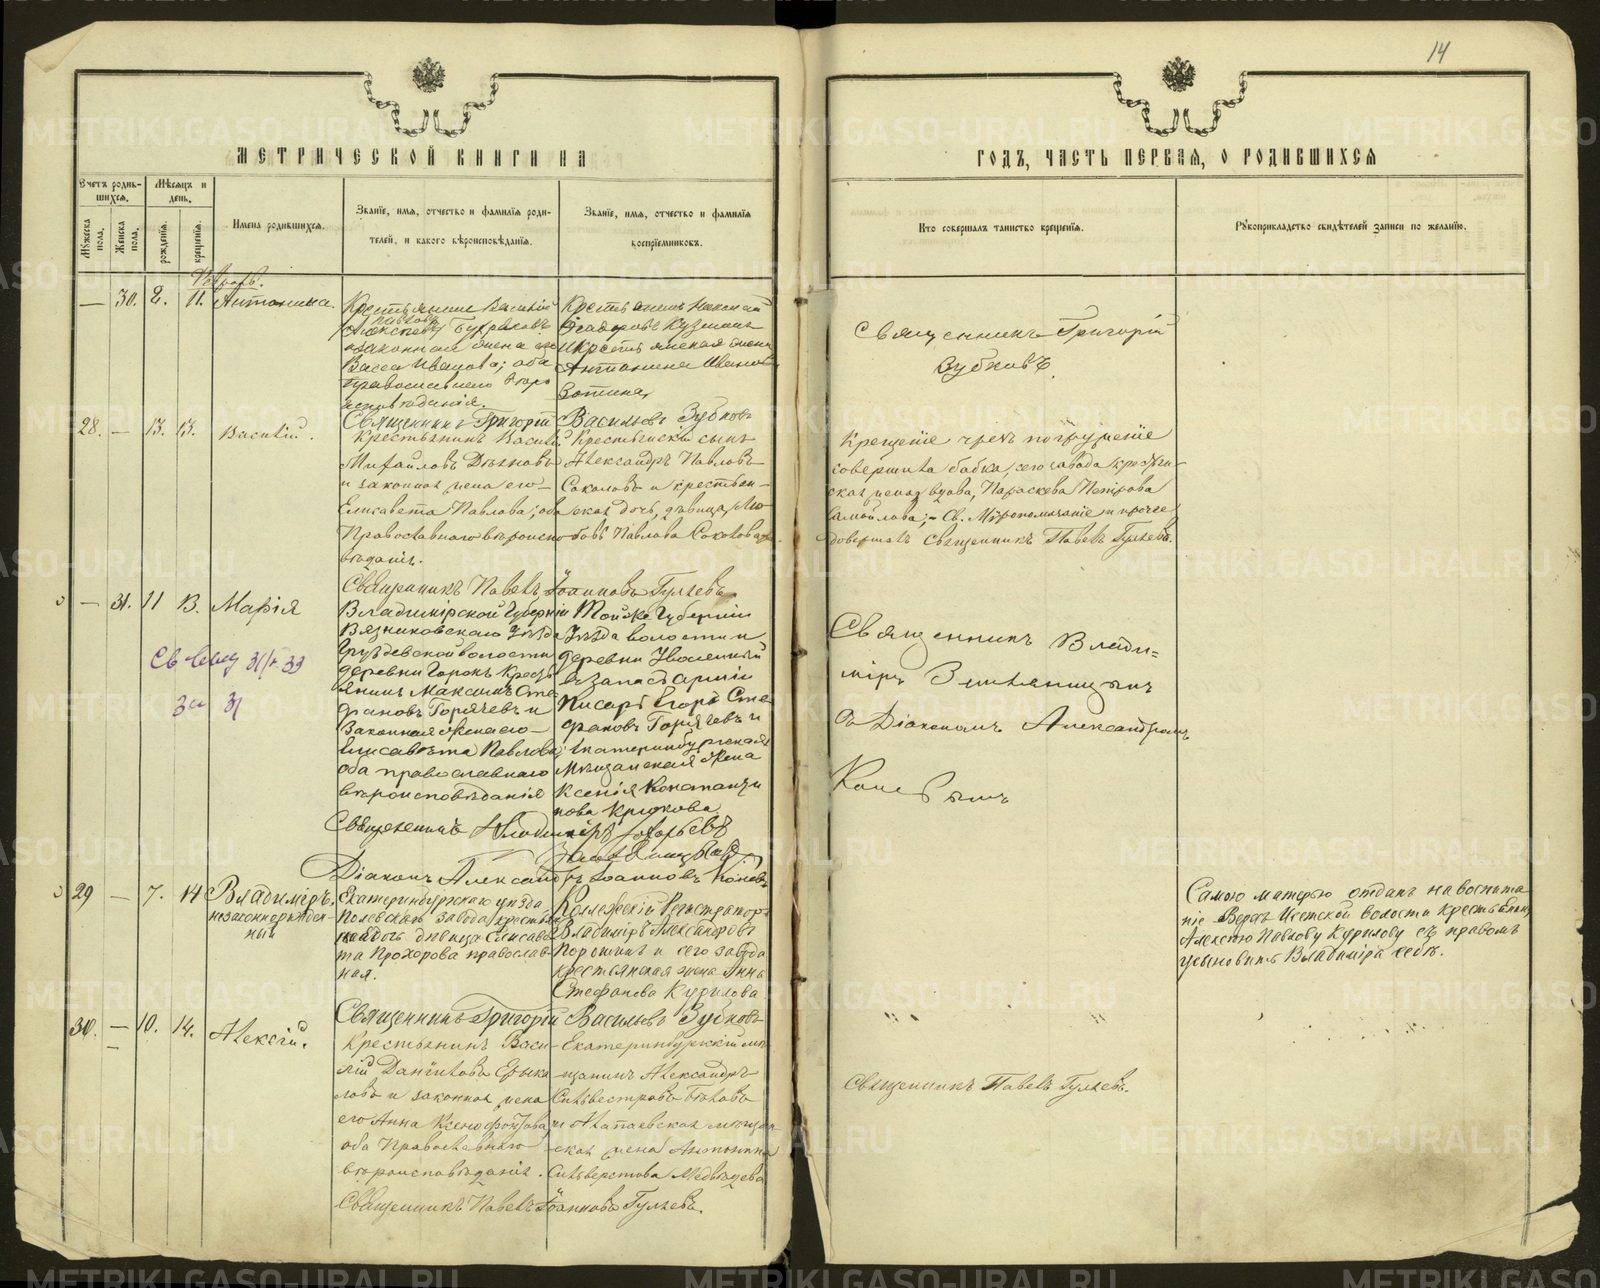 14
МЕТРИЧЕСКОЙ КНИГИ НА
ГОДЪ, ЧАСТЬ ПЕРВАЯ, О РОДИВШИХСЯ
Счетъ родив-
шихся.
Мужеска пола.
Женска пола.
Мѣсяцъ и
день.
рожденія.
крещенія.
Имена родившихся.
Званіе, имя, отчество и фамилія роди-
телей, и какого вѣроисповѣданія.
Званіе, имя, отчество и фамилія
воспріемниковъ.
Кто совершалъ таинство крещенія.
Рукоприкладство свидѣтелей записи по желанію.
— 30. 2. 11. Антонина.
Василій
законная жена его
Васса Иванова; оба
православнаго вѣро
исповѣданія.
Крестьянинъ
Ѳедоровъ Кузминъ
и крестьянская жена
Антонина Иванова
Зотина.
Священникъ Григорій
Зубковъ.
Священникъ Григорій Васильевъ Зубковъ
28. — 13. 13. Василій.
Крестьянинъ Василій
Михайловъ
и законная жена его
Елисавета Павлова; оба
Православнаго вѣроиспо-
вѣданія.
Крестьянскій сынъ
Александръ Павловъ
Соколовъ и крестьян-
ская дочь, дѣвица, Лю-
бовь Павлова Соколова.
Крещеніе чрезъ погруженіе
совершила бабка, сего завода крестьян-
ская жена вдова, Параскева Петрова
Самойлова; – Св. Мѵропомазаніе и прочее
довершилъ священникъ Павелъ Гуляевъ.
Священникъ Павелъ Іоанновъ Гуляевъ.
— 31. 11 13. Марія
Владимірской Губерніи
Вязниковскаго Уѣзда
Груздевской волости
деревни Горокъ Кресть
янинъ Максимъ Сте
фановъ Горячевъ и
Законная жена его
Елисавета Павлова;
оба православнаго
вѣроисповѣданія
Той же Губерніи
Уѣзда волости и
деревни Уволенный
въ запасъ арміи
Писарь Егоръ Сте
фановъ Горячевъ и
Екатеринбургская
Мѣщанская Жена
Ксенія Константи
нова Крюкова
Священникъ Влади-
міръ Земляницынъ
съ Діакономъ Александромъ
Коневымъ
за 31
Священникъ Владиміръ
Діаконъ Александръ Іоанновъ Коневъ
29 — 7. 14 Владиміръ.
незаконнорожден-
ный
Екатеринбургскаго уѣзда
Полевскаго завода крестьян
дочь дѣвица Елисаве
та Прохорова православ-
ная.
Коллежскій Регистраторъ
Владиміръ Александровъ
Порошинъ и сего завода
крестьянская жена Анна
Стефанова Курилова
Самою матерью отданъ на воспита
ніе Верхъ Исетской волости крестьянину
Алексѣю Павлову Курилову съ правомъ
усыновить Владиміра себѣ.
Священникъ Григорій Васильевъ Зубковъ
30. — 10. 14. Алексій.
Крестьянинъ Васи-
лій Даниловъ Ерыка
ловъ и законная жена
его Анна Ксенофонтова,
оба Православнаго
вѣроисповѣданія.
Екатеринбургскій мѣ-
щанинъ Александръ
Сильвестровъ
и Алапаевская мѣщан
ская жена Антонина
Сильверстова Медвѣдева
Священникъ Павелъ Гуляевъ.
Священникъ Павелъ Іоанновъ Гуляевъ.
METRIKI.GASO-URAL.RU